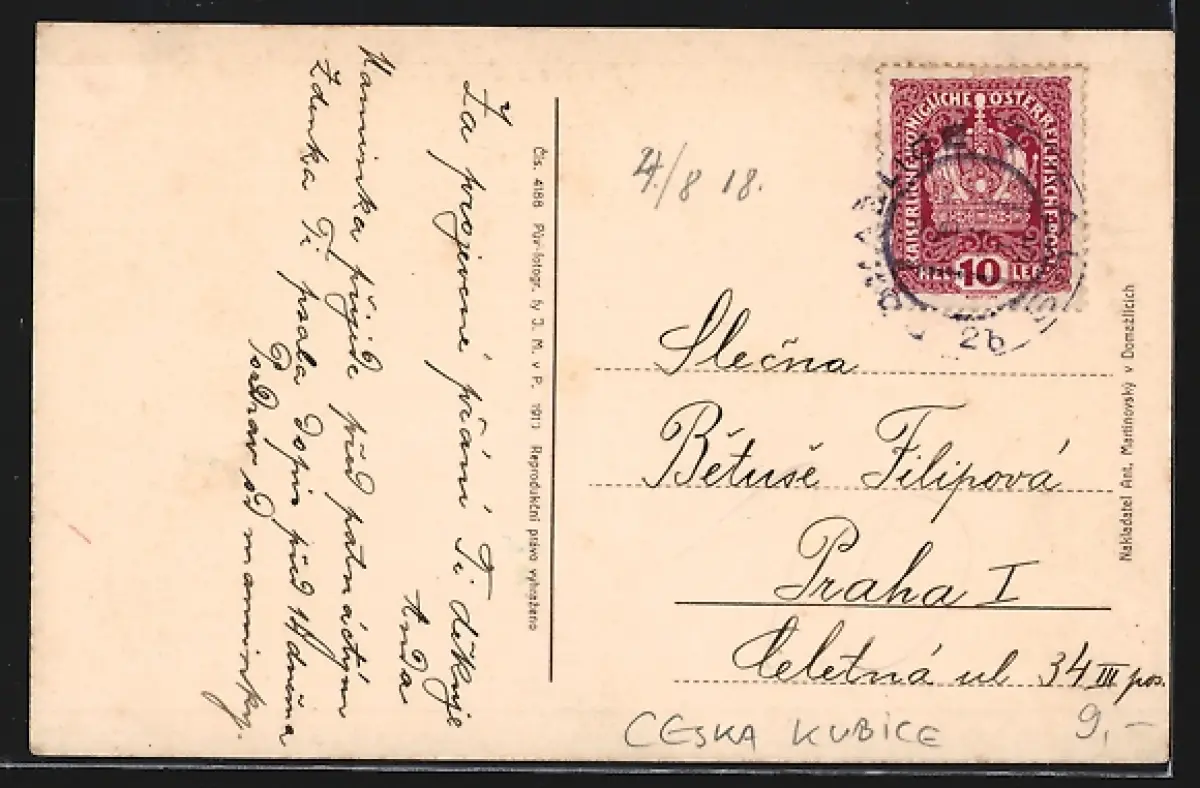 Za projevené přání Ti děkuje
Anda
Maminka přijede před patnáctým
Zdenka Ti psala dopis před 14 dněma
Pozdrav od maminky.
Čís. 4188 Pův. fotogr. fy J. M. v P. 1911 Reprodukční právo vyhraženo
4./8 18.
KAISERLICHE KÖNIGLICHE ÖSTERREICHISCHE POST
10
HELLER
26
Slečna
Bětuše Filipová
Praha I
Celetná ul 34 III pos.
Nakladatel Ant. Martinovský v Domažlicích
CESKA KUBICE
9,-